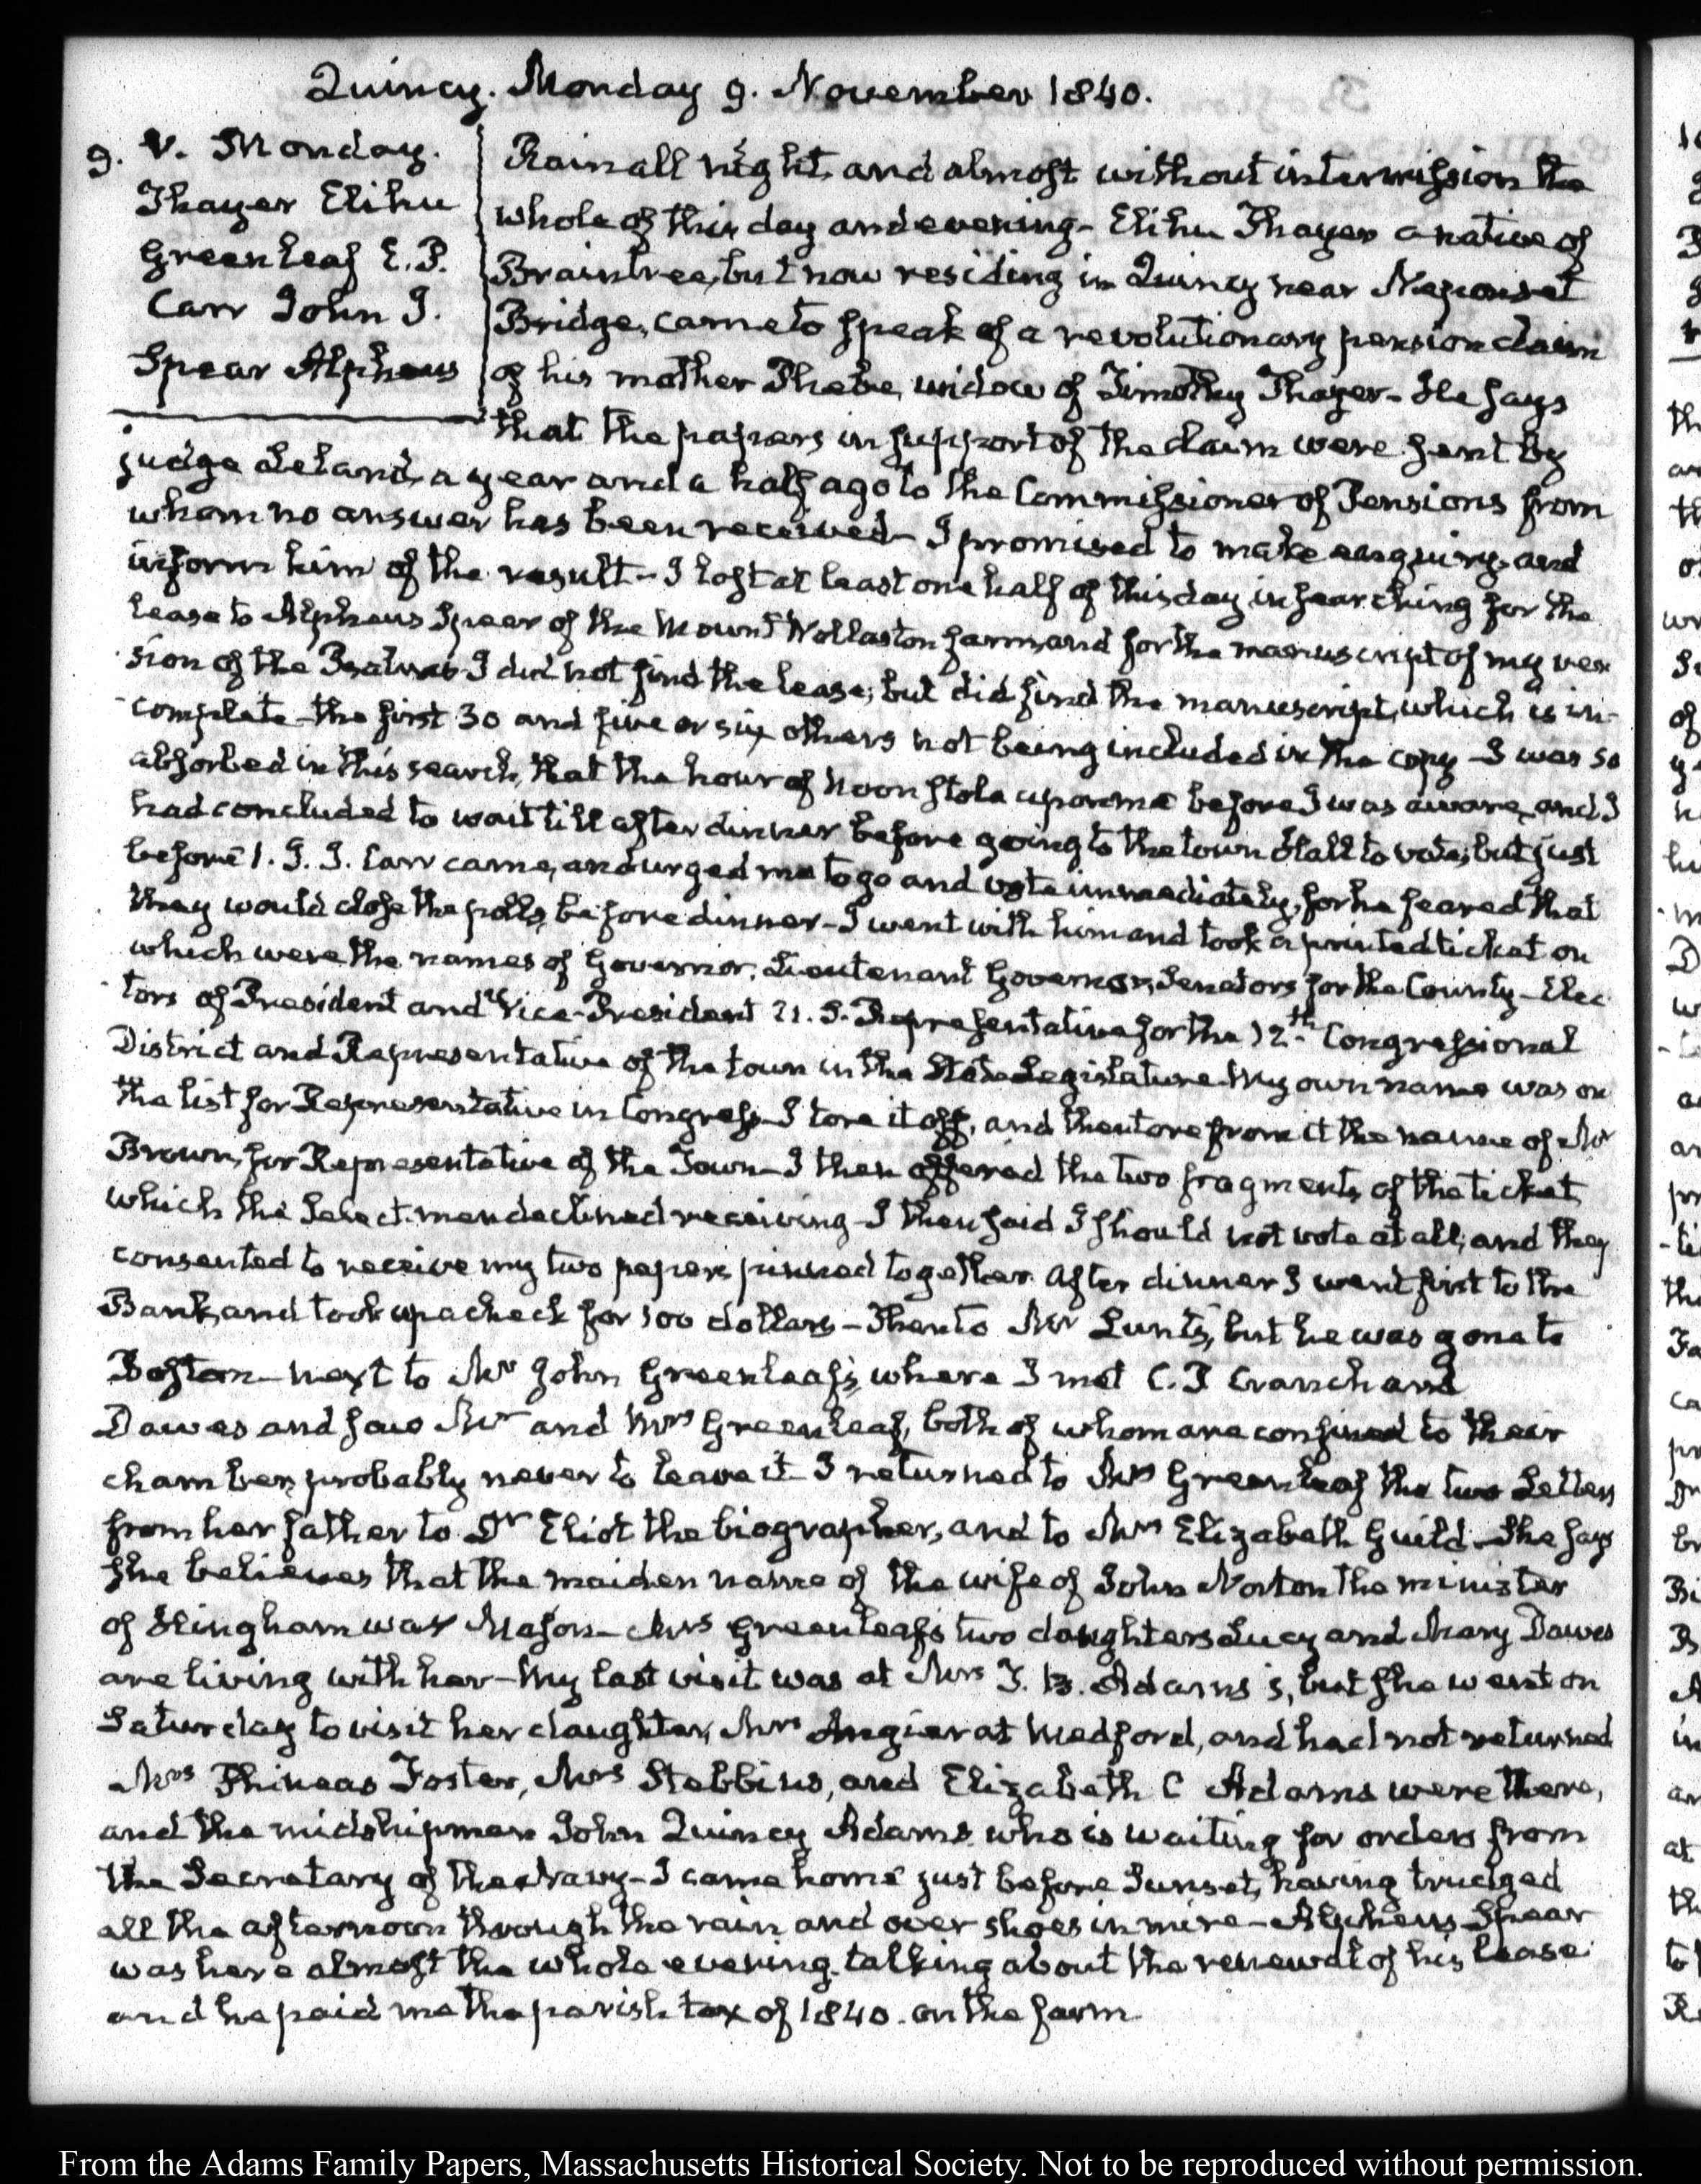 Quincy. Monday 9. November 1840.
9. V. Monday.
Thayer Elihu
Greenleaf E. P.
Carr John J.
Spear Alpheus
Rain all night, and almost without intermission the
whole of this day and evening - Elihu Thayer a native of
Braintree, but now residing in Quincy near Neponset
Bridge, came to speak of a revolutionary pension claim
of his mother Phebe, widow of Timothy Thayer - He says
that the papers in support of the claim were sent by
judge Leland, a year and a half ago to the Commissioner of Pensions from
whom no answer has been received - I promised to make enquiry, and
inform him of the result - I lost at least one half of this day in searching for the
lease to Alpheus Spear of the Mount Wollaston farm, and for the manuscript of my ver
sion of the Psalms - I did not find the lease; but did find the manuscript, which is in-
complete - the first 30 and five or six others not being included in the copy - I was so
absorbed in this search, that the hour of Noon stole upon me before I was aware, and I
had concluded to wait till after dinner before going to the town Hall to vote; but just
before 1. J. J. Carr came, and urged me to go and vote immediately, for he feared that
they would close the polls, before dinner - I went with him and took a printed ticket on
which were the names of Governor, Lieutenant Governor, Senators for the County - Elec
tors of President and Vice-President U. S. Representative for the 12th. Congressional
District and Representative of the town in the State Legislature. My own name was on
the list for Representative in Congress - I tore it off, and then tore from it the name of Mr
Brown, for Representative of the Town - I then offered the two fragments of the ticket,
which the Select-men declined receiving - I then said I should not vote at all; and they
consented to receive my two papers pinned together. After dinner I went first to the
Bank, and took up a check for 100 dollars - Then to Mr Lunt's, but he was gone to
Boston - next to Mr John Greenleaf's, where I met C. P Cranch and
Dawes and saw Mr and Mrs Greenleaf, both of whom are confined to their
chamber, probably never to leave it - I returned to Mrs Greenleaf the two Letters
from her father to Dr Eliot the biographer, and to Mrs Elizabeth Guild - She says
she believes that the maiden name of the wife of John Norton the minister
of Hingham was Mason - Mrs Greenleaf's two daughters Lucy and Mary Dawes
are living with her - My last visit was at Mrs T. B. Adams's, but she went on
Saturday to visit her daughter, Mrs Angier at Medford, and had not returned
Mrs Phineas Foster, Mrs Stebbins, and Elizabeth C Adams were there,
and the midshipman John Quincy Adams who is waiting for orders from
the Secretary of the Navy - I came home just before Sunset, having trudged
all the afternoon through the rain and over shoes in mire - Alpheus Spear
was here almost the whole evening talking about the renewal of his lease
and he paid me the parish tax of 1840. on the farm
From the Adams Family Papers, Massachusetts Historical Society. Not to be reproduced without permission.